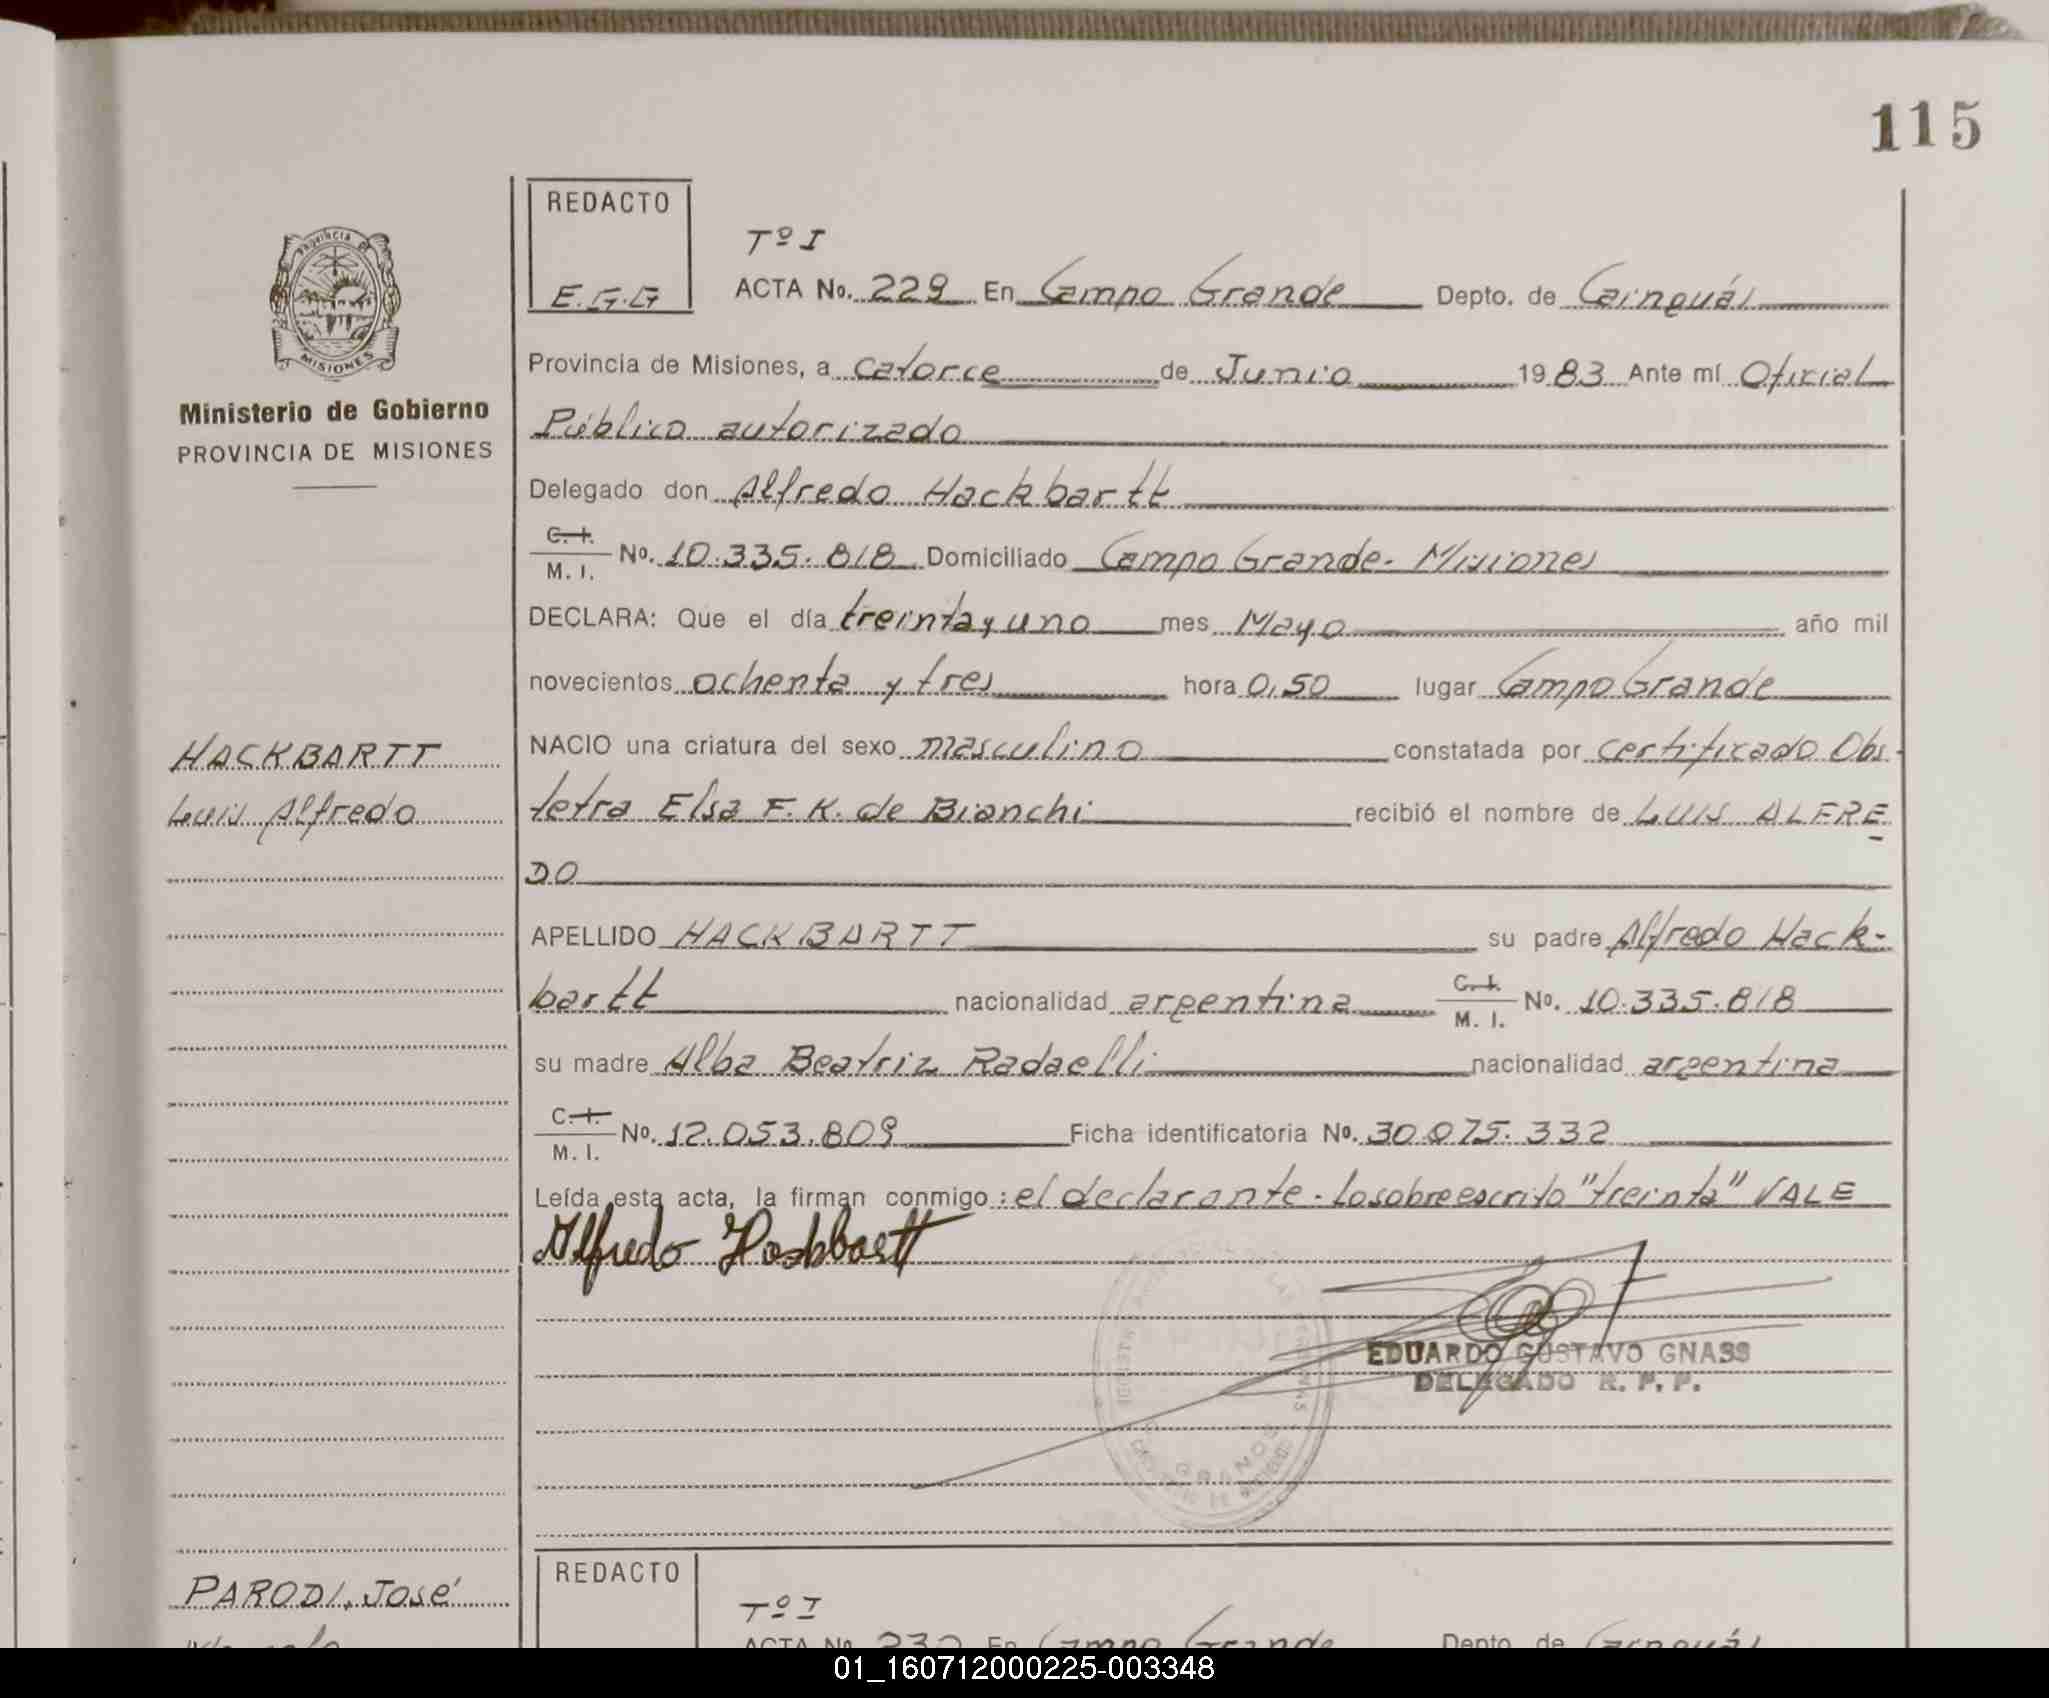 115
REDACTO
Tº I
E.G.G
ACTA No. 229 En Campo Grande Depto. de Cainguás
Provincia de Misiones, a catorce de Junio 1983 Ante mí Oficial
Público autorizado
Delegado don Alfredo Hackbartt
C. I.
M. I. No. 10.335.818 Domiciliado Campo Grande - Misiones
DECLARA: Que el día treinta y uno mes Mayo año mil
novecientos ochenta y tres hora 0,50 lugar Campo Grande
NACIO una criatura del sexo masculino constatada por certificado Obs-
tetra Elsa F. K. de Bianchi recibió el nombre de LUIS ALFRE
DO
APELLIDO HACKBARTT su padre Alfredo Hack-
bartt nacionalidad argentina C. I.
M. I. No. 10.335.818
su madre Alba Beatriz Radaelli nacionalidad argentina
C. I.
M. I. No. 12.053.809 Ficha identificatoria No. 30.075.332
Leída esta acta, la firman conmigo: el declarante. Lo sobreescrito "treinta" VALE
Alfredo Hackbartt
EDUARDO GUSTAVO GNASS
DELEGADO R. P. P.
Provincia de
MISIONES
Ministerio de Gobierno
PROVINCIA DE MISIONES
HACKBARTT
Luis Alfredo
PARODI, José
REDACTO
Tº I
ACTA No. 230 En Campo Grande Depto. de Cainguás
01_160712000225-003348